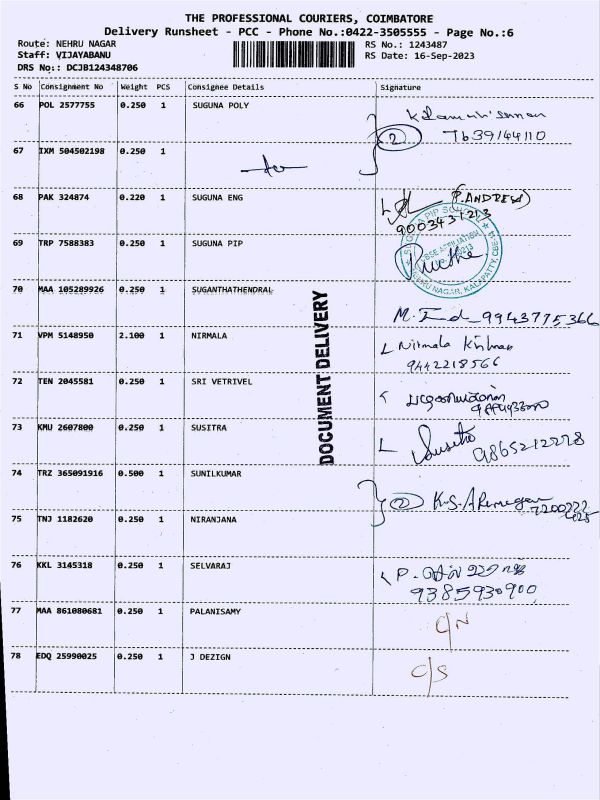 THE PROFESSIONAL COURIERS, COIMBATORE
Delivery Runsheet - PCC - Phone No.:0422-3505555 - Page No.:6
Route: NEHRU NAGAR
RS No.: 1243487
Staff: VIJAYABANU
RS Date: 16-Sep-2023
DRS No:: DCJB124348706
S No Consignment No Weight PCS Consignee Details Signature
66 POL 2577755 0.250 1 SUGUNA POLY
2
67 IXM 504502198 0.250 1
68 PAK 324874 0.220 1 SUGUNA ENG
(P.ANDREW)
9003431213
69 TRP 7588383 0.250 1 SUGUNA PIP
70 MAA 105289926 0.250 1 SUGANTHATHENDRAL
9943775366
71 VPM 5148950 2.100 1 NIRMALA
Nirmala Krishnan
9442218566
DOCUMENT DELIVERY
72 TEN 2045581 0.250 1 SRI VETRIVEL
73 KMU 2607800 0.250 1 SUSITRA
Susitra 9865212278
74 TRZ 365091916 0.500 1 SUNILKUMAR
2
75 TNJ 1182620 0.250 1 NIRANJANA
76 KKL 3145318 0.250 1 SELVARAJ
9385930900
77 MAA 861080681 0.250 1 PALANISAMY
C/N
78 EDQ 25990025 0.250 1 J DEZIGN
C/S